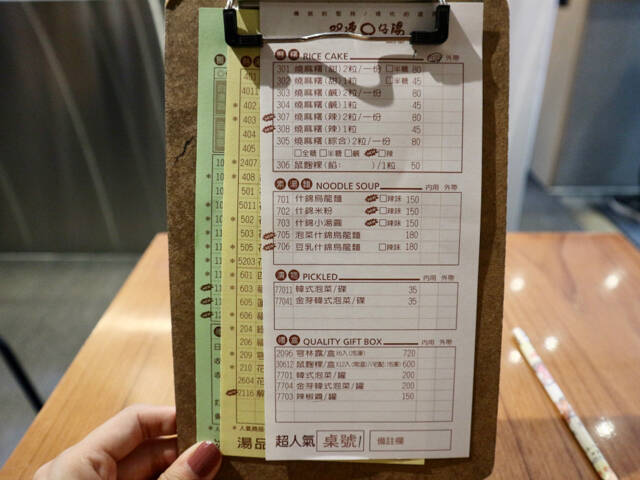 傳統的堅持／現代的創
双連O仔湯
麻糬 RICE CAKE 內用 外帶
301 燒麻糬(甜)2粒/一份 □半糖 80
302 燒麻糬(甜)1粒 □半糖 45
303 燒麻糬(鹹)2粒/一份 80
304 燒麻糬(鹹)1粒 45
307 燒麻糬(辣)2粒/一份 80
308 燒麻糬(辣)1粒 45
305 燒麻糬(綜合)2粒/一份 80
□全糖 □半糖 □鹹 □辣
306 鼠麴粿(餡: )/1粒 50
素湯麵 NOODLE SOUP 內用 外帶
701 什錦烏龍麵 □辣味 150
702 什錦米粉 □辣味 150
703 什錦小湯圓 □辣味 150
705 泡菜什錦烏龍麵 180
706 豆乳什錦烏龍麵 □辣味 180
漬物 PICKLED 內用 外帶
77011 韓式泡菜/碟 35
77041 金芽韓式泡菜/碟 35
禮盒 QUALITY GIFT BOX 內用 外帶
2096 雪林露/盒 720
30612 鼠麴粿/盒 600
7701 韓式泡菜/罐 200
7704 金芽韓式泡菜/罐 200
7703 辣椒醬/罐 150
超人氣 桌號 備註欄
401
411
402
403
405
2407
501
5011
502
503
505
5203
601
603
605
606
204
209
210
2604
2116
湯品